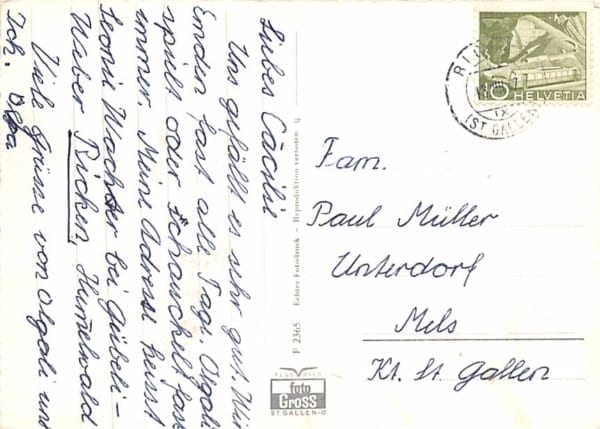 Liebes Cäcilie
Uns gefällt es sehr gut. Wir
Emden fast alle Tag. Olgali
spielt oder schauckelt fast
immer. Meine Adresse heisst
Leonie Wachter bei Giübeli-
Weber Ricken, Hummelwald
Viele Grüsse von Olgali und
F 2365 Echter Fotodruck - Reproduktion verboten
FLUGBILD
foto
Gross
ST GALLEN-O
10 HELVETIA
(ST GALLEN)
Fam.
Paul Müller
Unterdorf
Mels
Kt. St. Gallen